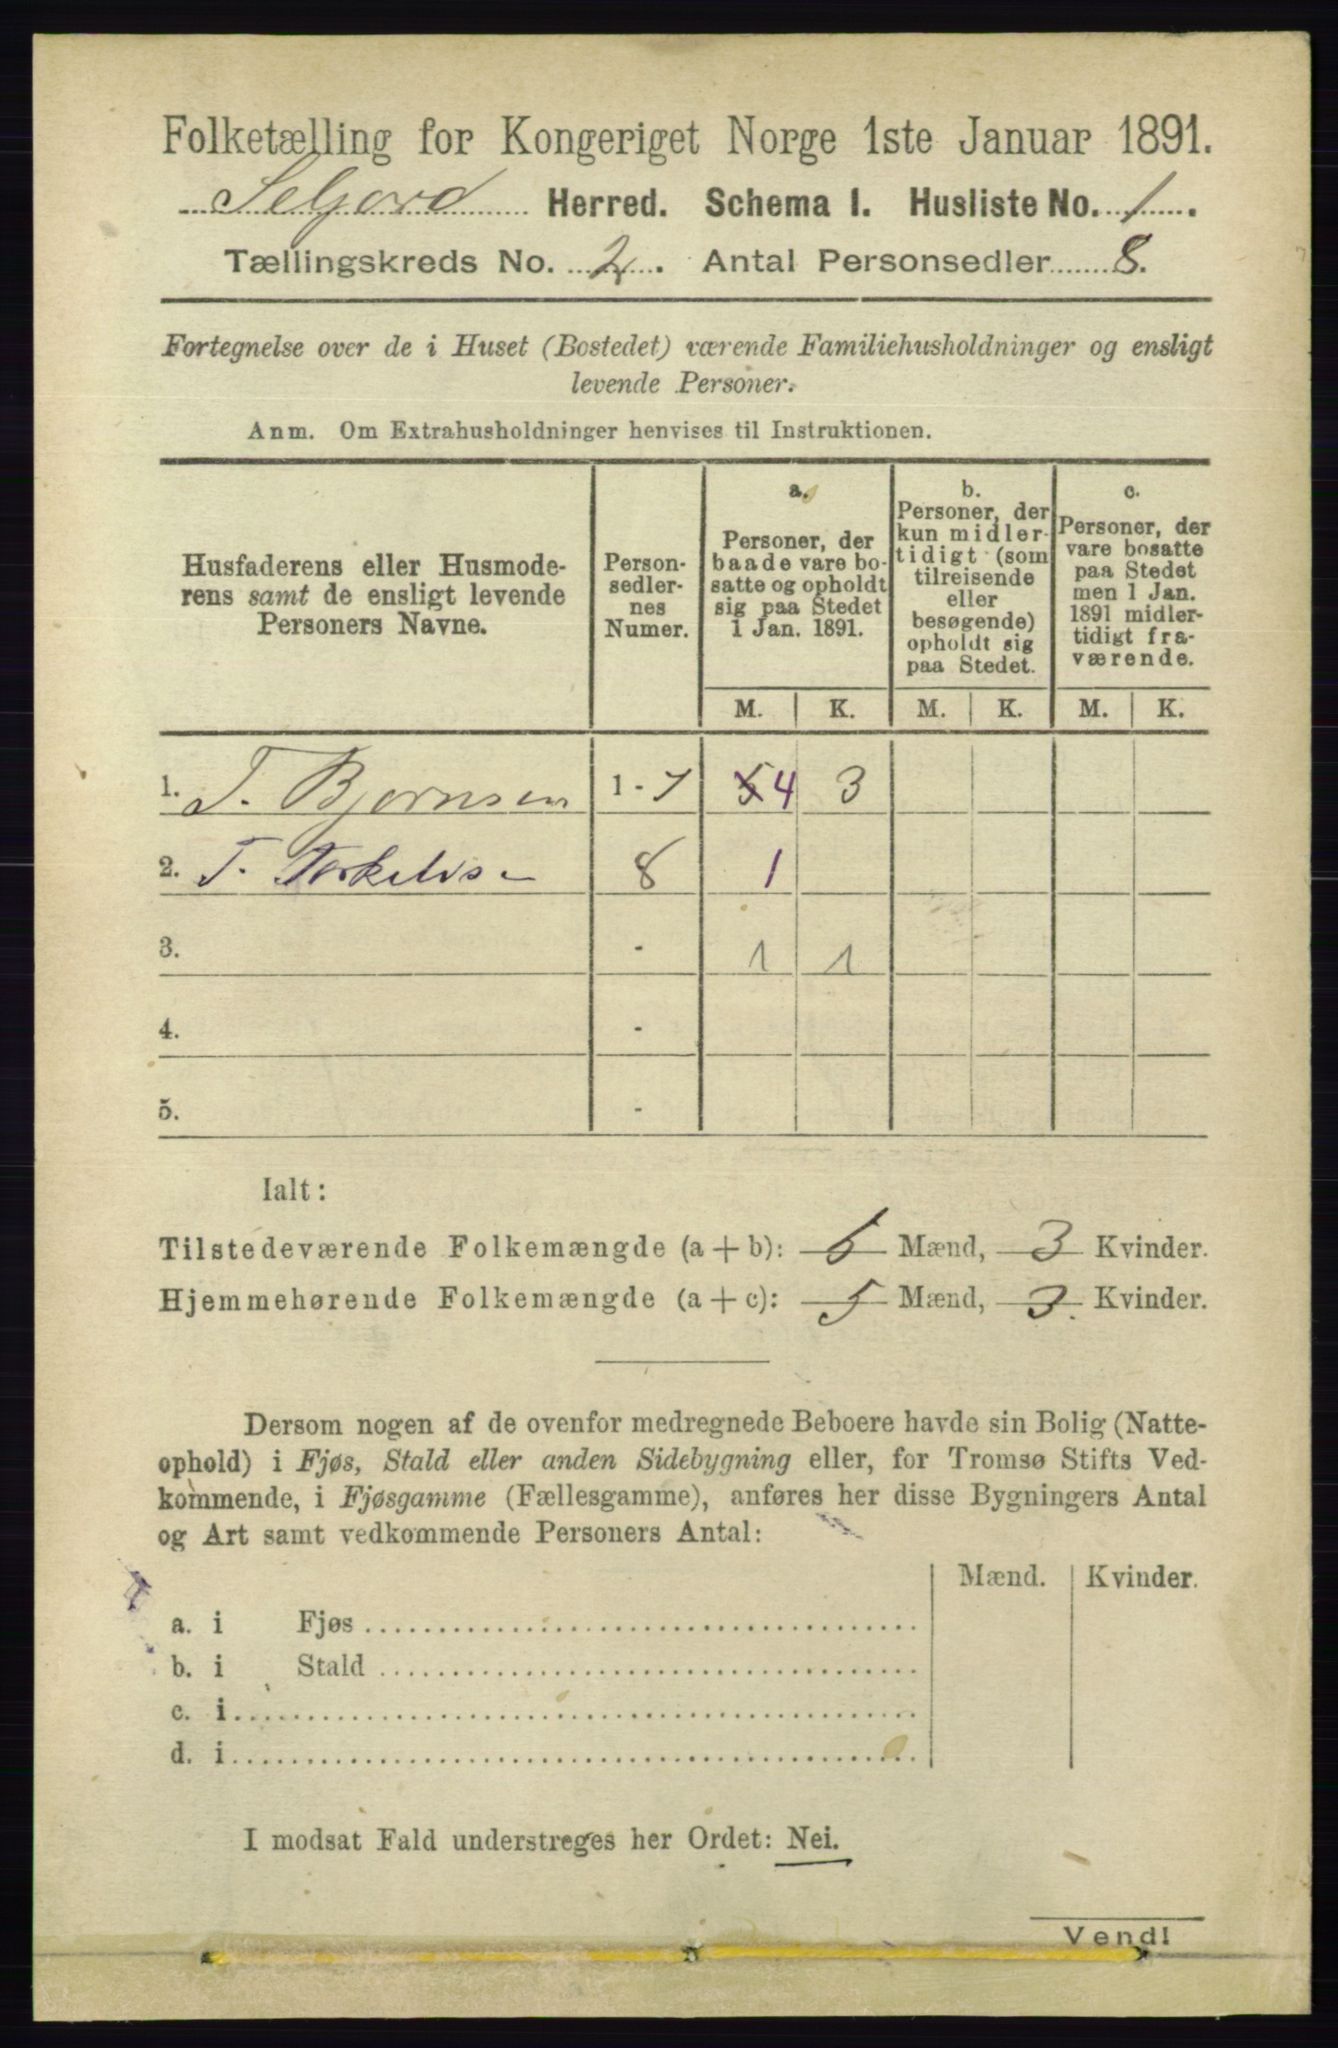 Folketælling for Kongeriget Norge 1ste Januar 1891.
Seljord Herred. Schema I. Husliste No. 1.
Tællingskreds No. 2. Antal Personsedler 8.
Fortegnelse over de i Huset (Bostedet) værende Familiehusholdninger og ensligt
levende Personer.
Anm. Om Extrahusholdninger henvises til Instruktionen.
Husfaderens eller Husmode-
rens samt de ensligt levende
Personers Navne.
Person-
sedler-
nes
Numer.
a.
Personer, der
baade vare bo-
satte og opholdt
sig paa Stedet
1 Jan. 1891.
b.
Personer, der
kun midler-
tidigt (som
tilreisende
eller
besøgende)
opholdt sig
paa Stedet.
c.
Personer, der
vare bosatte
paa Stedet
men 1 Jan.
1891 midler-
tidigt fra-
værende.
M. K. M. K. M. K.
1. T. Bjørnsen 1 - 7 5 4 3
2. T. Torkelsen 8 1
3. - 1 1
4. -
5. -
Ialt:
Tilstedeværende Folkemængde (a + b): 5 Mænd, 3 Kvinder.
Hjemmehørende Folkemængde (a + c): 5 Mænd, 3. Kvinder.
Dersom nogen af de ovenfor medregnede Beboere havde sin Bolig (Natte-
ophold) i Fjøs, Stald eller anden Sidebygning eller, for Tromsø Stifts Ved-
kommende, i Fjøsgamme (Fællesgamme), anføres her disse Bygningers Antal
og Art samt vedkommende Personers Antal:
Mænd. Kvinder.
a. i Fjøs
b. i Stald
c. i
d. i
I modsat Fald understreges her Ordet: Nei.
Vend!